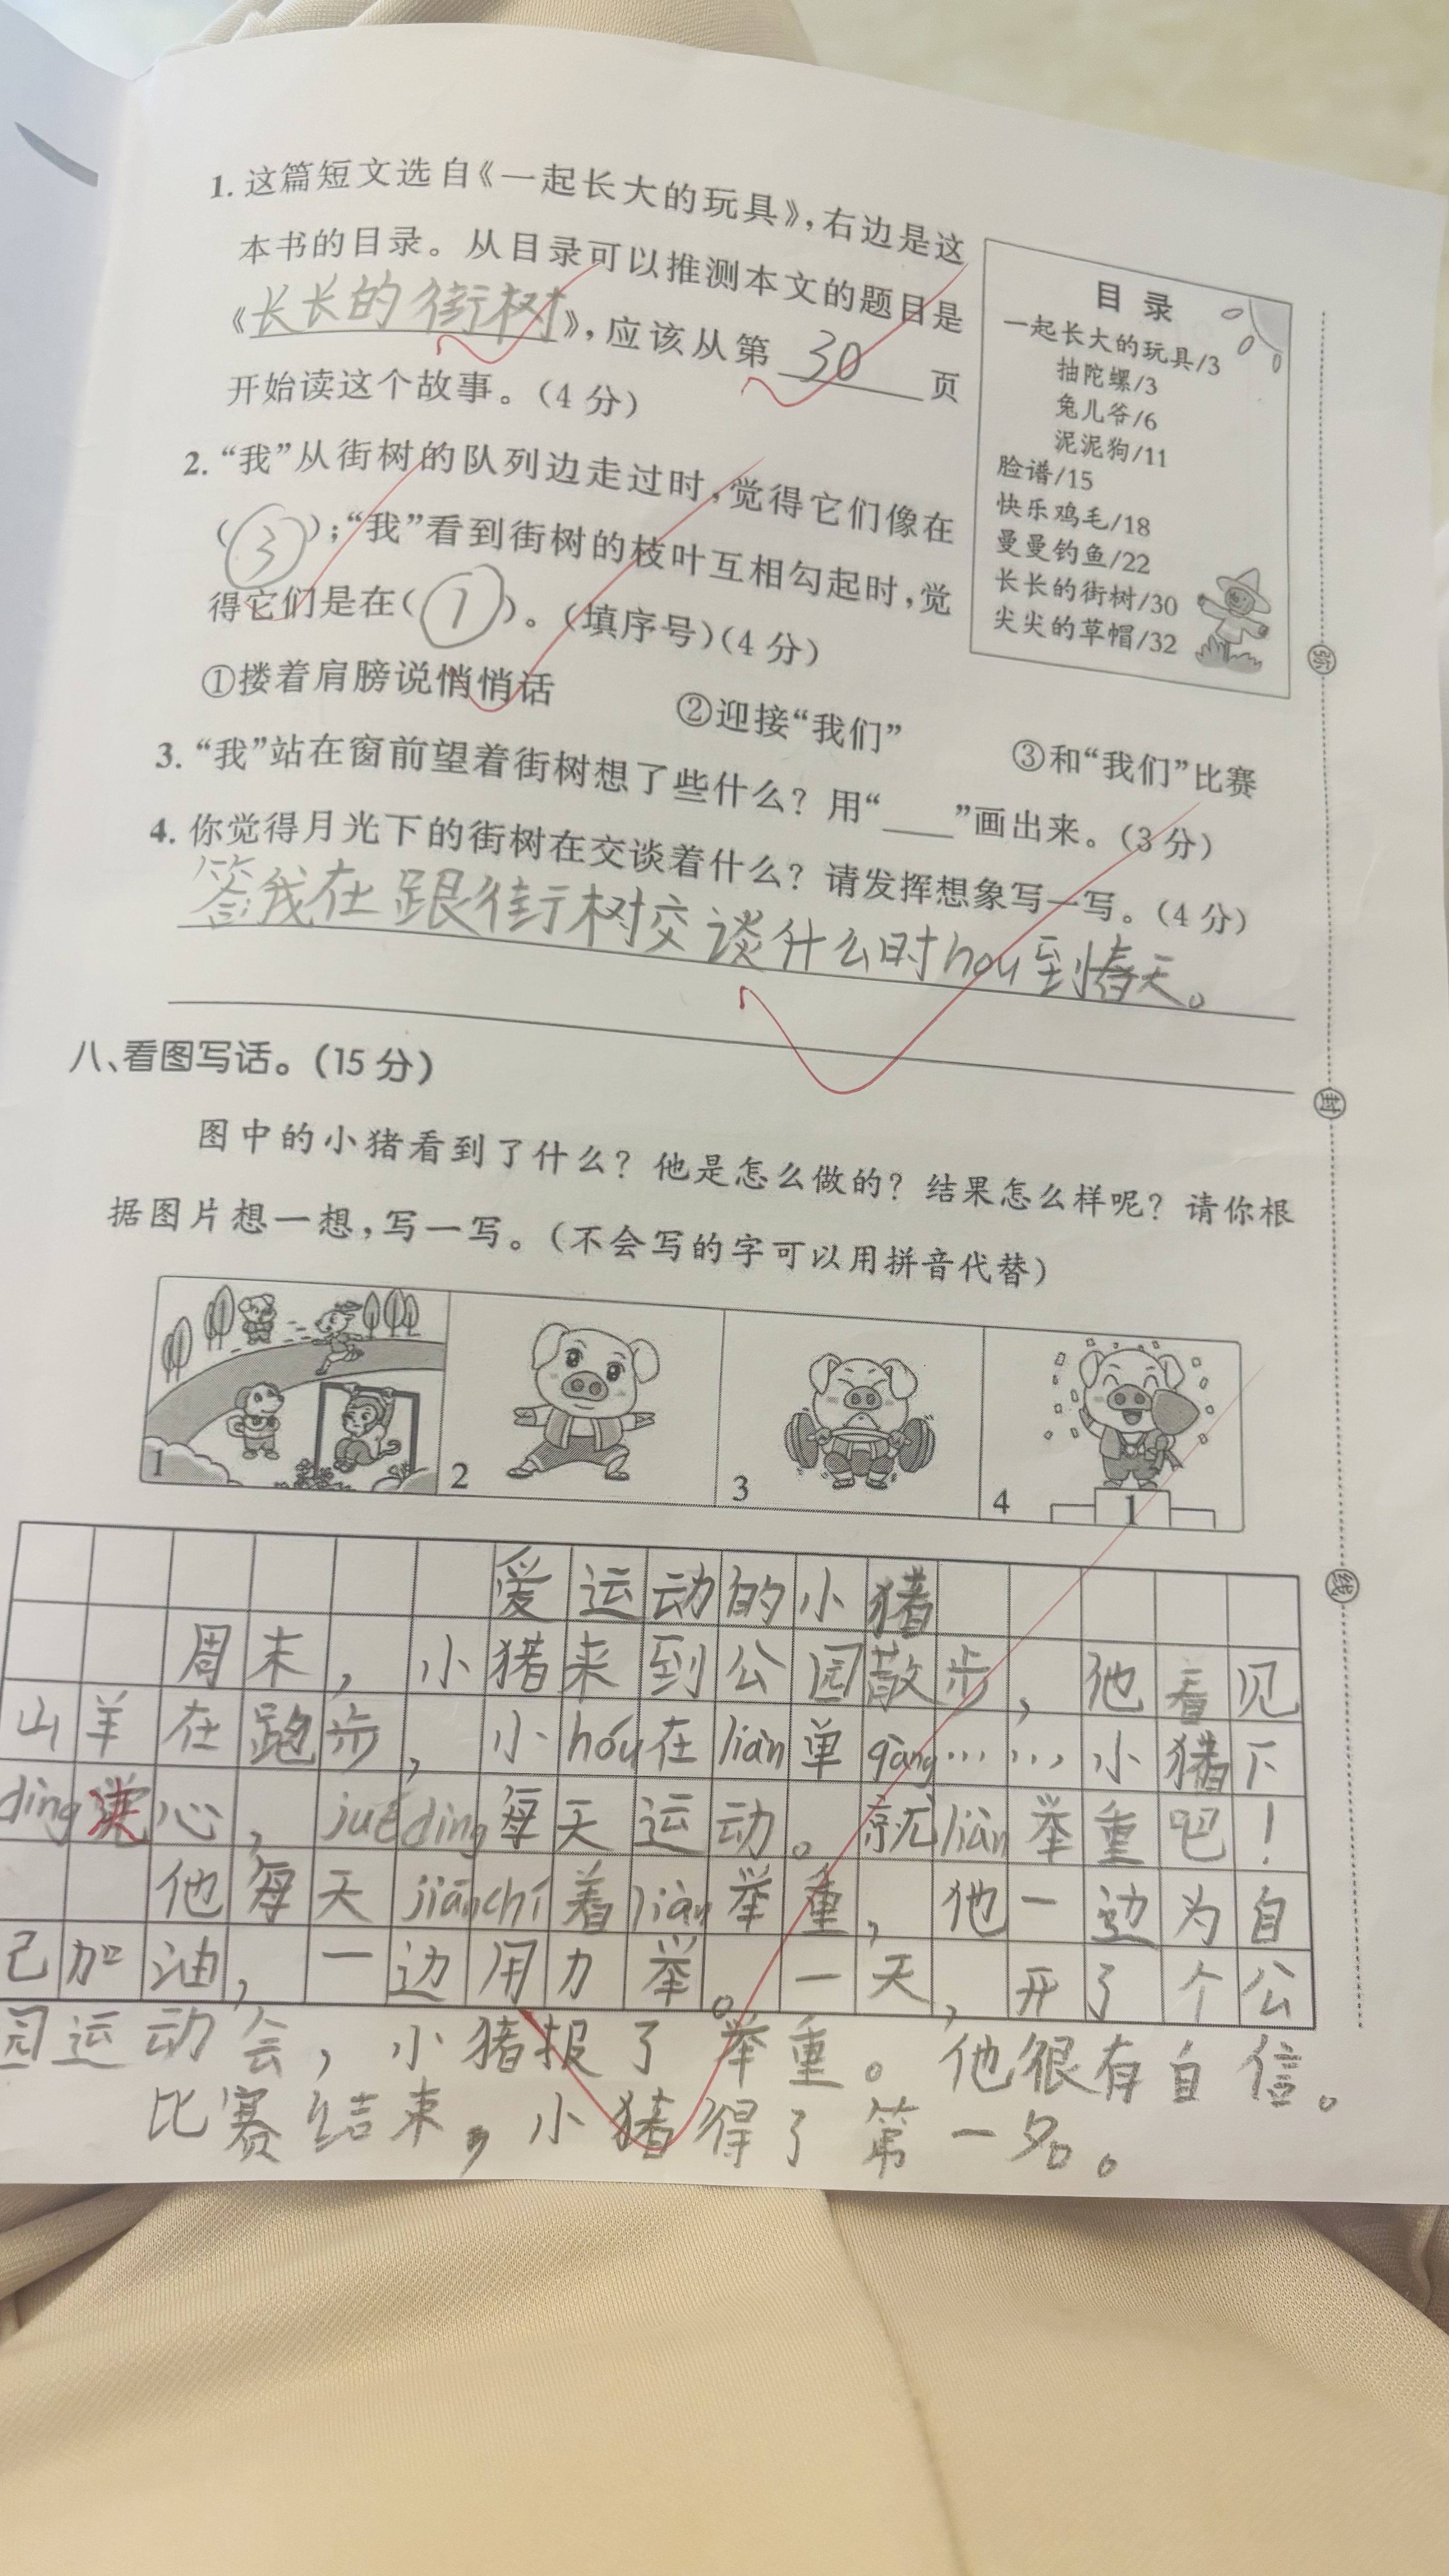 1. 这篇短文选自《一起长大的玩具》,右边是这
本书的目录。从目录可以推测本文的题目是
《长长的街树》,应该从第 30 页
开始读这个故事。(4 分)
2. “我”从街树的队列边走过时,觉得它们像在
(③);“我”看到街树的枝叶互相勾起时,觉
得它们是在(①)。(填序号)(4 分)
①搂着肩膀说悄悄话 ②迎接“我们” ③和“我们”比赛
3. “我”站在窗前望着街树想了些什么?用“____”画出来。(3 分)
4. 你觉得月光下的街树在交谈着什么?请发挥想象写一写。(4 分)
答我在跟街树交谈什么时hou到春天。
目 录
一起长大的玩具/3
抽陀螺/3
兔儿爷/6
泥泥狗/11
脸谱/15
快乐鸡毛/18
曼曼钓鱼/22
长长的街树/30
尖尖的草帽/32
弥
封
线
八、看图写话。(15 分)
图中的小猪看到了什么?他是怎么做的?结果怎么样呢?请你根
据图片想一想,写一写。(不会写的字可以用拼音代替)
1
2
3
4
1
爱运动的小猪
周末,小猪来到公园散步,他看见
山羊在跑步,小hóu在liàn单gàng……小猪下
dìng决心,juédìng每天运动。就liàn举重吧!
他每天jiānchí着liàn举重,他一边为自
己加油,一边用力举。一天,开了个公
园运动会,小猪报了举重。他很有自信。
比赛结束,小猪得了第一名。